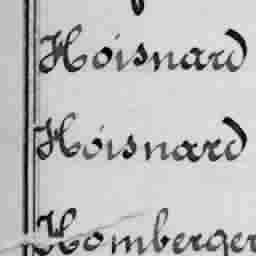 Hoisnard
Hoisnard
Homberger